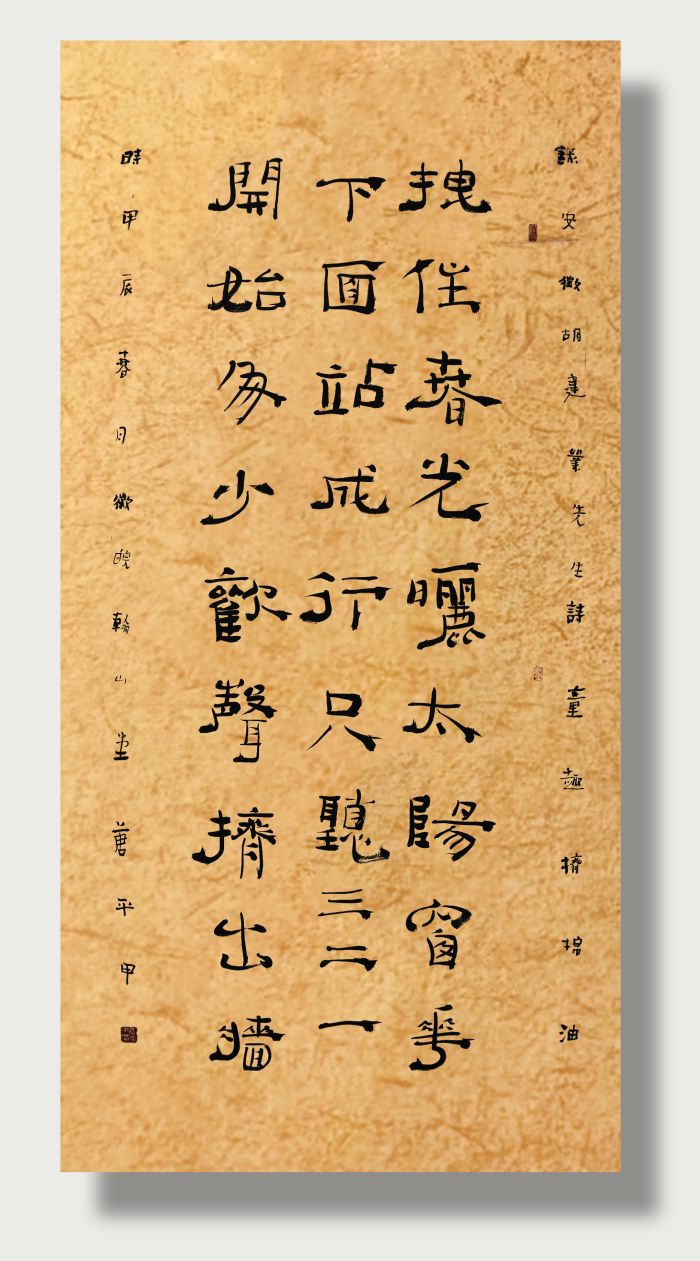 錄安徽胡建業先生詩童趣擠棉油
拽住春光曬太陽窗華
下面站成行只聽三二一
開始多少歡聲擠出牆
時甲辰春月徽皖翰山堂唐平甲